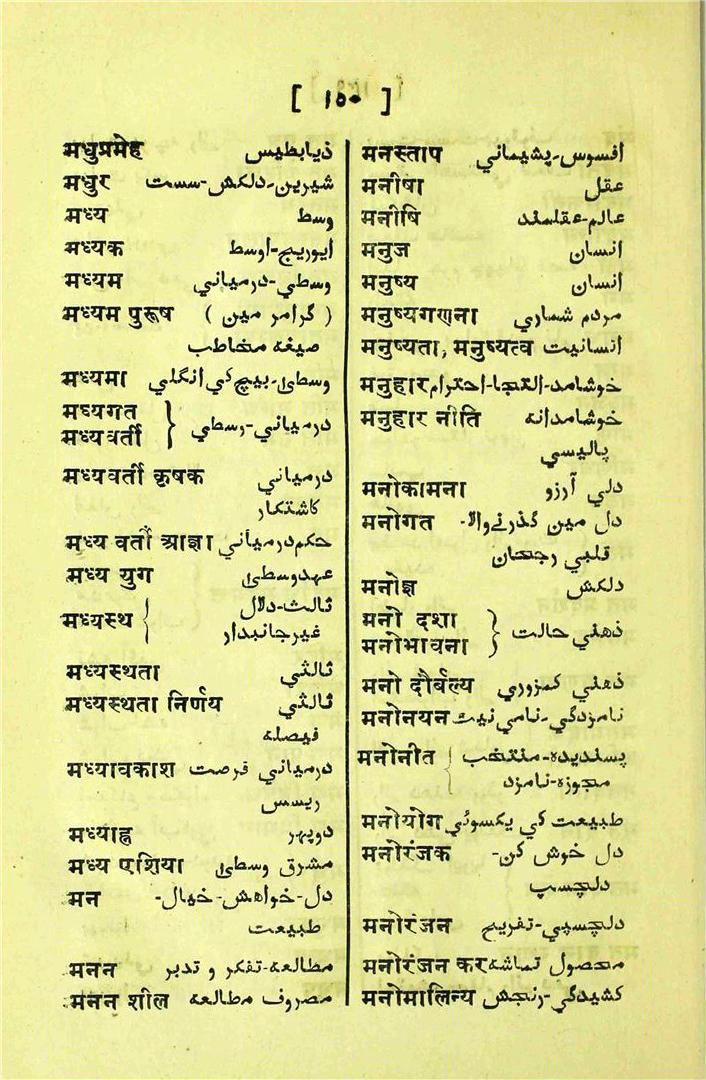 [ ١٥٠ ]
मधुप्रमेह ذیابطیس
मधुर شیرین-دلکش-سست
मध्य وسط
मध्यक ایوریج-اوسط
मध्यम وسطي-درمیاني
मध्यम पुरूष ( گرامر مین )
صیغه مخاطب
मध्यमा وسطیٰ-بیچ کي انگلي
मध्यगत
मध्यवर्ती } درمیاني-وسطي
मध्यवर्ती कृषक درمیاني
کاشتکار
मध्य वर्ती आज्ञा حکم درمیاني
मध्य युग عهد وسطیٰ
मध्यस्थ { ثالث-دلال
غیرجانبدار
मध्यस्थता ثالثي
मध्यस्थता निर्णय ثالثي
فیصله
मध्यावकाश درمیاني فرصت
ریسس
मध्याह्न دوپهر
मध्य एशिया مشرق وسطیٰ
मन دل-خواهش-خیال-
طبیعت
मनन مطالعه-تفکر و تدبر
मनन शील مصروف مطالعه
मनस्ताप افسوس-پشیماني
मनीषा عقل
मनीषि عالم-عقلمند
मनुज انسان
मनुष्य انسان
मनुष्यगणना مردم شماري
मनुष्यता, मनुष्यत्व انسانیت
मनुहार خوشامد-التجا-احترام
मनुहार नीति خوشامدانه
پالیسي
मनोकामना دلي آرزو
मनोगत دل مین گذرنےوالا-
قلبي رجحان
मनोज्ञ دلکش
मनो दशा
मनोभावना } ذهني حالت
मनो दौर्बल्य ذهني کمزوري
मनोनयन نامزدگي-نامي نیت
मनोनीत { پسندیده-منتخب
مجوزه-نامزد
मनोयोग طبیعت کي یکسوئي
मनोरंजक دل خوش کن-
دلچسپ
मनोरंजन دلچسپي-تفریح
मनोरंजन कर محصول تماشه
मनोमालिन्य کشیدگي-رنجش